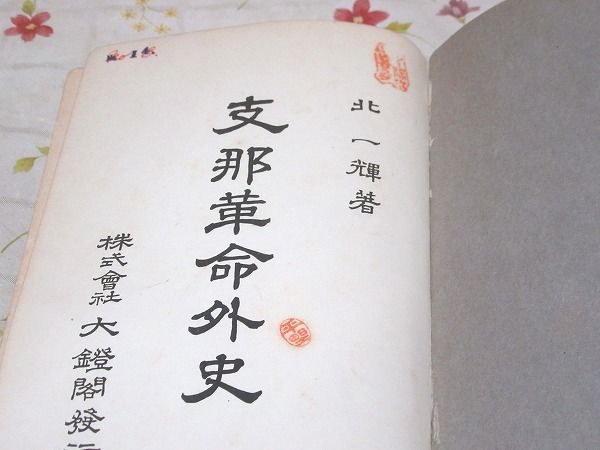 北一輝著
支那革命外史
株式會社大鐙閣發